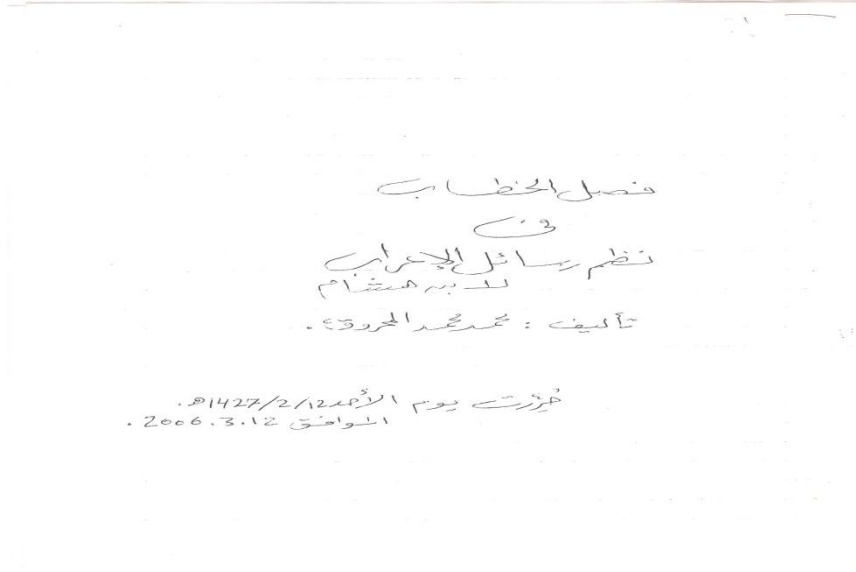 فصل الخطاب
في
نظم رسائل الإعراب
لابن هشام
تأليف : محمد محمد المحروق .
حُرِّرت يوم الأحد 1427/2/12هـ.
الموافق 2006.3.12 .